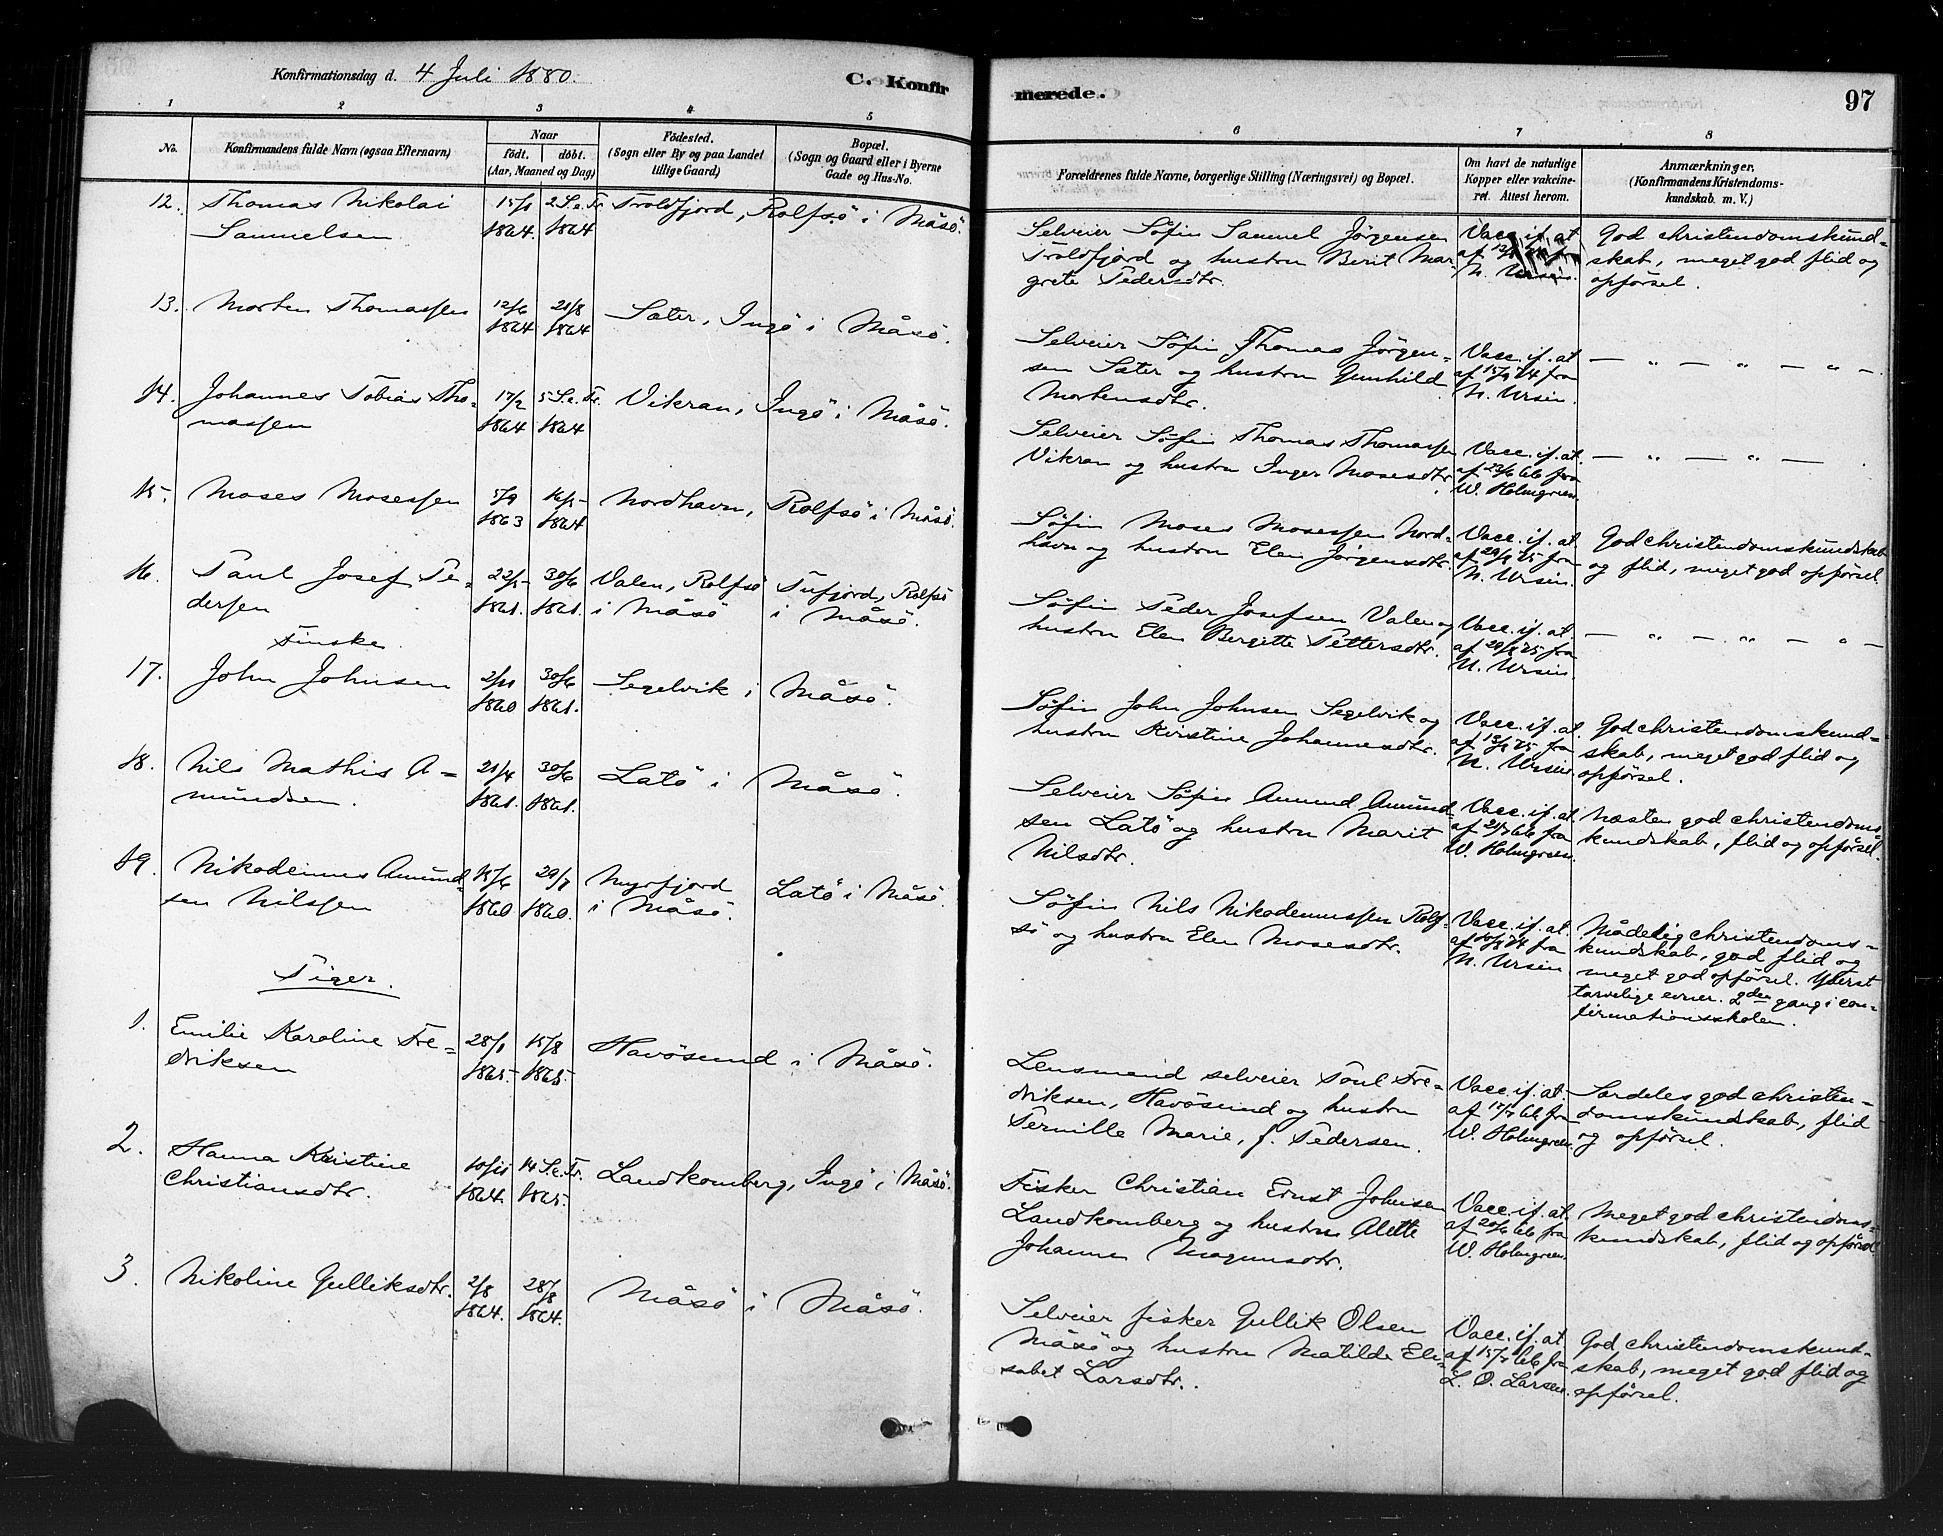 Konfirmationsdag d. 4 Juli 1880.
C. Konfirmerede.
97
1 2 3 4 5 6 7 8
No.
Konfirmandens fulde Navn (ogsaa Efternavn)
Naar
födt. döbt.
(Aar, Maaned og Dag)
Födested.
(Sogn eller By og paa Landet
tillige Gaard)
Bopæl.
(Sogn og Gaard eller i Byerne
Gade og Hus-No.
Forældrenes fulde Navne, borgerlige Stilling (Næringsvei) og Bopæl.
Om havt de naturlige
Kopper eller vakcine-
ret. Attest herom.
Anmærkninger.
(Konfirmandens Kristendoms-
kundskab m. V.)
12. Thomas Nikolai 15/1 2 S.e.Tr. Troldfjord, Rolfsö i Måsö.
Samuelsen 1864. 1864
Selveier Söfin Samuel Jörgensen
Troldfjord og hustru Berit Mar-
grete Pedersdtr.
Vacc. if. at
N. Ursin.
God christendomskund-
skab, meget god flid og
opförsel.
13. Morten Thomassen 12/6 21/8 Sæter, Ingö i Måsö.
1864 1864
Selveier Söfin Thomas Jörgen-
sen Sæter og hustru Gunhild
Mortensdtr.
Vacc. if. at
af 15/9 74 fra
N. Ursin.
— „ — „ — „ —
14. Johannes Tobias Tho- 17/2 5 S.e.Tr. Vikran, Ingö i Måsö.
massen 1864 1864
Selveier Söfin Thomas Thomassen
Vikran og hustru Inger Mosesdtr.
Vacc. if. at.
af 23/6 66 fra
W. Holmgreen.
— „ — „ —
15. Moses Mosessen 5/9 16/5 Nordhavn, Rolfsö i Måsö.
1863 1864
Söfin Moses Mosessen Nord-
havn og hustru Elen Jörgensdtr.
Vacc. if. at.
af 29/8 75 fra
N. Ursin.
God christendomskundskab
og flid, meget god opförsel
16. Paul Josef Pe- 22/5 30/6 Valen, Rolfsö Tufjord, Rolfsö
dersen 1861. 1861. i Måsö i Måsö.
Finske.
Söfin Peder Josefsen Valen og
hustru Elen Bergitte Pettersdtr.
Vacc. if. at.
af 29/8 75 fra
N. Ursin.
— „ — „ — „ —
17. John Johnsen 2/11 30/6 Segelvik i Måsö.
1860 1861.
Söfin John Johnsen Segelvik og
hustru Kirstine Johannesdtr.
Vacc. if. at.
af 13/9 75 fra
N. Ursin.
God christendomskund-
skab, meget god flid og
opförsel.
18. Nils Mathis A- 21/4 30/6 Latö i Måsö.
mundsen. 1861. 1861.
Selveier Söfin Amund Amund-
sen Latö og hustru Marit
Nilsdtr.
Vacc. if. at.
af 21/7 66 fra
W. Holmgreen.
Næsten god christendoms-
kundskab, flid og opförsel.
19. Nikodemus Amund- 15/6 29/7 Myrfjord Latö i Måsö.
sen Nilssen 1860 1860. i Måsö.
Söfin Nils Nikodemussen Rolf-
sö og hustru Elen Mosesdtr.
Vacc. if. at.
af 10/8 74 fra
N. Ursin
Mådelig christendoms-
kundskab, god flid og
meget god opförsel. Yderst
tarvelige evner. 2den gang i con-
firmationsskolen.
Piger.
1. Emilie Karoline Fre- 28/1 15/8 Havösund i Måsö.
driksen 1865. 1865.
Lensmand selveier Poul Fre-
driksen, Havösund og hustru
Pernille Marie, f. Pedersen.
Vacc. if. at.
af 17/7 66 fra
W. Holmgreen.
Særdeles god christen-
domskundskab, flid
og opförsel.
2. Hanna Kristine 10/11 14 S.e.Tr. Landkomberg, Ingö i Måsö.
Christiansdtr. 1864. 1865.
Fisker Christian Ernst Johnsen
Landkomberg og hustru Alette
Johanne Magnusdtr.
Vacc. if. at.
af 20/6 66 fra
W. Holmgreen.
Meget god christendoms-
kundskab, flid og opförsel
3. Nikoline Gulliksdtr. 2/8 28/8 Måsö i Måsö.
1864. 1864.
Selveier fisker Gullik Olsen
Måsö og hustru Matilde Eli-
sabet Larsdtr.
Vacc. if. at
af 15/7 66 fra
L. O. Larsen.
God christendomskund-
skab, meget god flid og
opförsel.